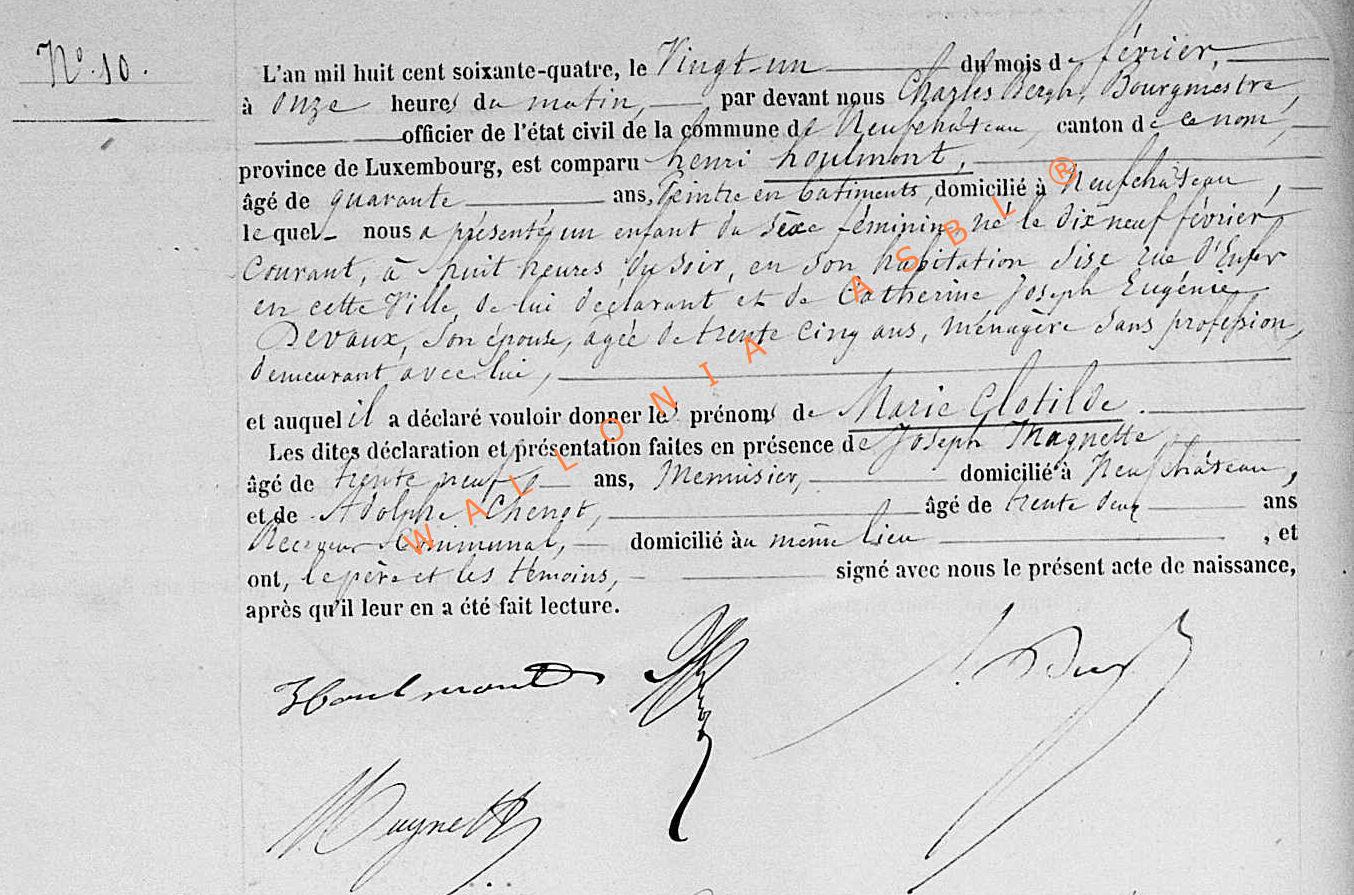 N° 10.
L'an mil huit cent soixante-quatre, le Vingt-un du mois de février,
à onze heures du matin, par devant nous Charles Bergh, Bourgmestre,
officier de l'état civil de la commune de Neufchâteau, canton de ce nom,
province de Luxembourg, est comparu henri houlmont,
âgé de quarante ans, Peintre en bâtiments, domicilié à Neufchâteau,
le quel nous a présenté un enfant du sexe féminin, né le dix neuf février
courant, à huit heures du soir, en son habitation sise rue d'Enfer
en cette Ville, de lui déclarant et de Catherine Joseph Eugénie
Devaux, son épouse, agée de trente cinq ans, ménagère sans profession,
demeurant avec lui,
et auquel il a déclaré vouloir donner les prénoms de Marie Clotilde.
Les dites déclaration et présentation faites en présence de Joseph Magnette,
âgé de trente neuf ans, Menuisier, domicilié à Neufchâteau,
et de Adolphe âgé de trente deux ans
Receveur Communal, domicilié au même lieu, et
ont, le père et les témoins, signé avec nous le présent acte de naissance,
après qu'il leur en a été fait lecture.
Houlmont
Magnette
WALLONIA ASBL ®